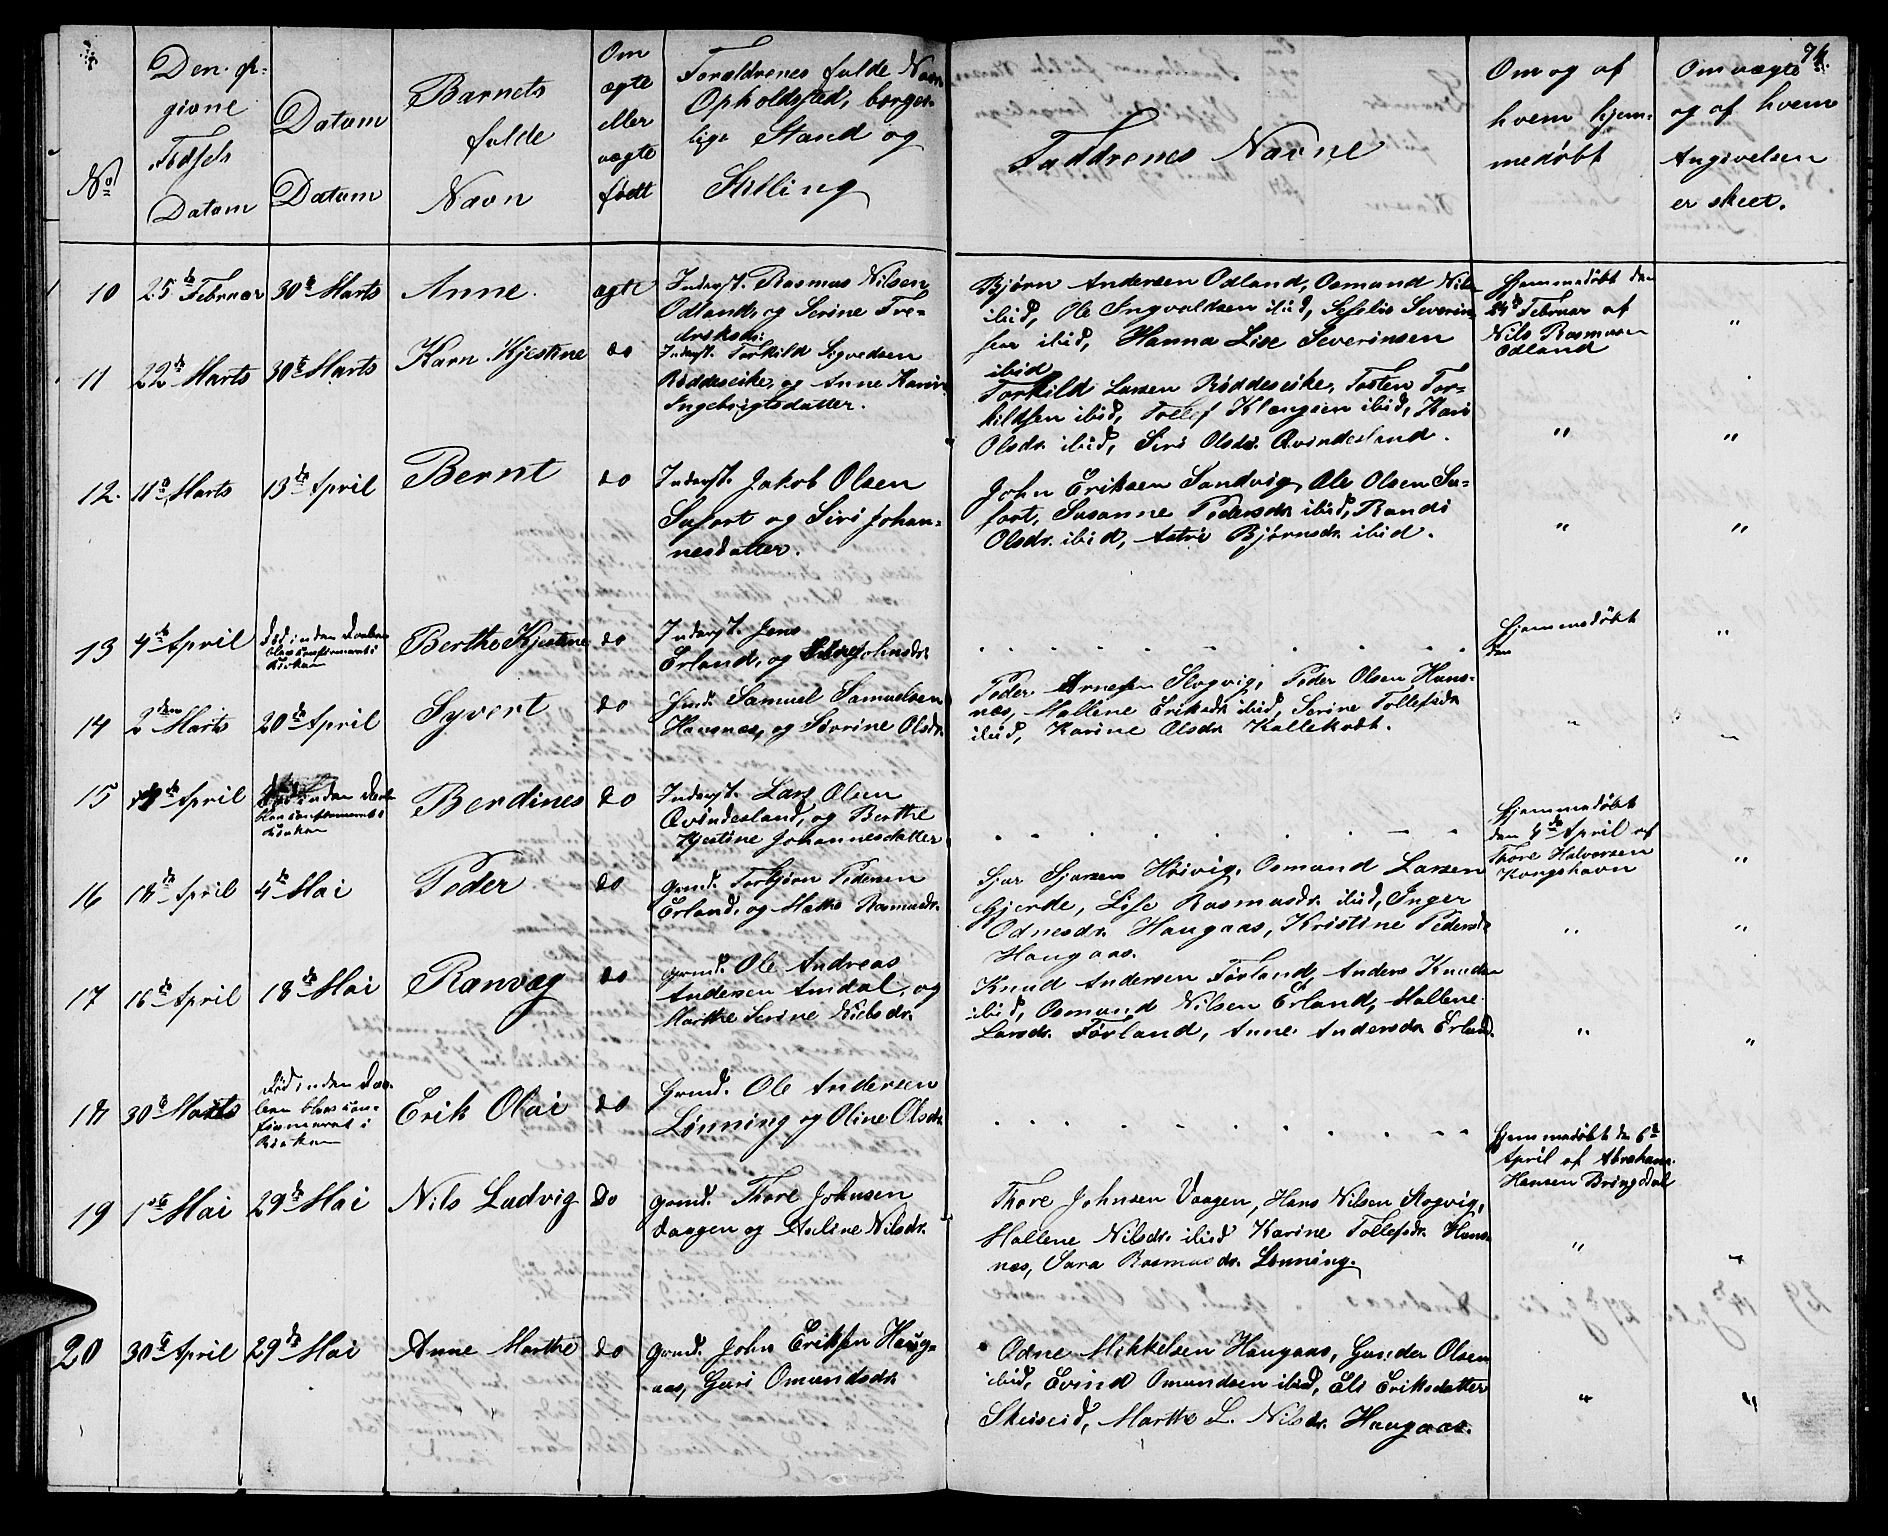 74.
No
Den op-
givne
Fødsels
Datum
Datum
Datum
Barnets
fulde
Navn
Om
ægte
eller
uægte
født
Forældrenes fulde Navn
Opholdsted, borger-
lige Stand og
Stilling
Faddrenes Navne
Om og af
hvem hjem-
medøbt
Om vægte
og af hvem
Angivelsen
er skeet.
10 25de Februar 30te Marts Anne. ægte
Inderst. Rasmus Nilsen
Odland, og Serine Fre-
driksdr.
Bjørn Andersen Odland, Osmund Nils
ibid, Ole Ingvaldsen ibid, Severin
ibid, Hanna Lise Severinsen
ibid
Hjemmedøbt den
24de Februar af
Nils Rasmusen
Odland
"
11 22de Marts 30te Marts Karn Kjestine do
Inderst. Torkild Sigvedsen
Røddeseike, og Anne Karin
Ingebrigtsdatter.
Torkild Larsen Røddeseike, Tosten Tor-
kildsen ibid, Tollef Klengsen ibid, Kari
Olsdr. ibid, Siri Olsdr. Qvindesland.
" "
12. 11te Marts 13de April Bernt do
Inderst. Jakob Olsen
Sufort og Siri Johan-
nesdatter.
John Eriksen Sandvig, Ole Olsen Su-
fort, Susanne Pedersdr. ibid, Randi
Olsdr. ibid, Astri Bjørnsdr. ibid.
" "
13 4de April Død inden Daaben
blev confirmeret i
Kirken
Berthe Kjestine do
Inderst. Jens
Erland, og Johnsdr.
Hjemmedøbt
den
"
14 2den Marts 20de April Syvert do
Gmd. Samuel Samuelsen
Hausnæs, og Søvrine Olsdr.
Peder Arnesen Slogvig, Peder Olsen Hans-
næs, Mallene Eriksdr. ibid, Serine Tollefsdr.
ibid, Karine Olsdr. Kallekodt.
" "
15 April Død inden Daab
blev confirmeret i
Kirken
Berdines do
Inderst. Lars Olsen
Qvindesland, og Berthe
Kjestine Johannesdatter
Hjemmedøbt
den 4de April af
Thore Halvorsen
Kongshavn
"
16 18de April 4de Mai Peder do
Gmd. Torbjørn Pedersen
Erland, og Marthe Rasmusdr.
Sjur Sjursen Høivig, Osmund Larsen
Gjerde, Lise Rasmusdr. ibid, Inger
Odnesdr. Haugaas, Kristine Pedersdr.
Haugaas.
" "
17 16de April 18de Mai Ranvæg do
Gmd. Ole Andreas
Andersen Amdal, og
Marthe Serine Nielsdr.
Knud Andersen Førland, Anders Knudsen
ibid, Osmund Nilsen Erland, Mallene
Larsdr. Førland, Anne Andersdr. Erland.
" "
18 30te Marts Død inden Daa-
ben blev con-
firmeret i
Kirken
Erik Olai do
Gmd. Ole Andersen
Lønning og Oline Olsdr.
Hjemmedøbt den 6te
April af Abraham
Hansen Bringedal
19 1ste Mai 29de Mai Nils Ludvig do
Gmd. Thore Johnsen
Vaagen og Nilsdr.
Thore Johnsen Vaagen, Hans Nilsen Slogvig,
Mallene Nilsdr. ibid Karine Tollefsdr. Hans-
næs, Sara Rasmusdr. Lønning.
" "
20 30te April 29de Mai Anne Marthe do
Gmd. John Eriksen Haug-
aas, Guri Omundsdr.
Odne Mikkelsen Haugaas, Gunder Olsen
ibid, Evind Omundsen ibid, Eli Eriksdatter
Skeiseid, Marthe L. Nilsdr. Haugaas.
" "